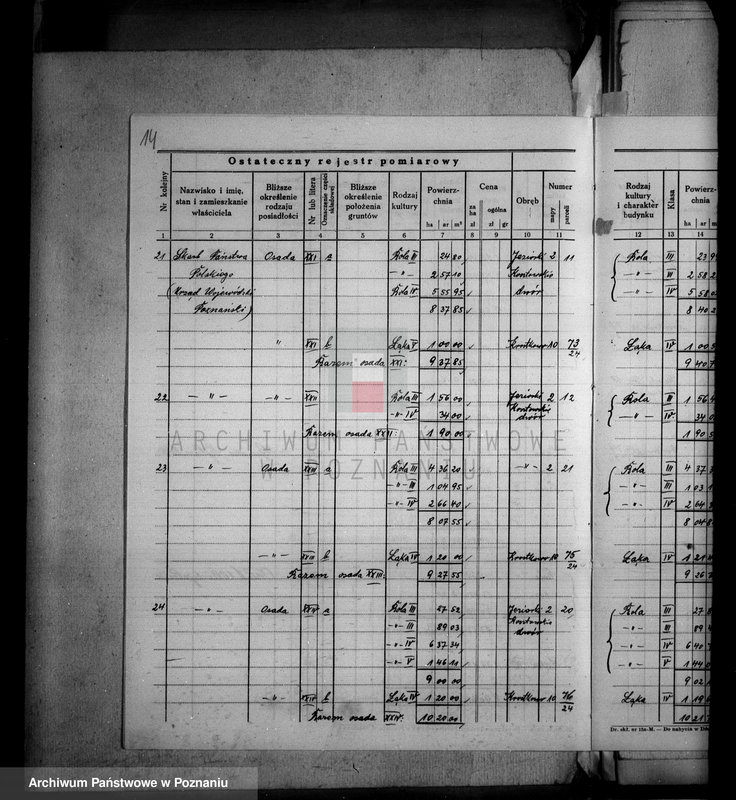 14
Ostateczny rejestr pomiarowy
Nr kolejny
Nazwisko i imię, stan i zamieszkanie właściciela
Bliższe określenie rodzaju posiadłości
Nr lub litera
Oznaczenie części składowej
Bliższe określenie położenia gruntów
Rodzaj kultury
Powierzchnia
ha ar m²
Cena
za ha zł
ogólna zł gr
Obręb
Numer
mapy parceli
Rodzaj kultury i charakter budynku
Klasa
Powierzch-
ha ar
1 2 3 4 5 6 7 8 9 10 11 12 13 14
21 Skarb Państwa Osada XXI a Rola III 24 80 2 11 Rola III 23 9
Polskiego -"- 2 57 10 -"- 2 58 2
(Urząd Wojewódzki Rola IV 5 55 95 dwór -"- IV 5 58
Poznański) 8 37 85 8 40
" XXI b Łąka V 1 00 00 10 73/24 Łąka IV 1 00 5
Razem osada XXI: 9 37 85 9 40 7
22 -"- -"- XXII Rola III 1 56 00 2 12 Rola III 1 56
-"- IV 34 00 dwór -"- IV 34 0
Razem osada 1 90 00 1 90 5
23 -"- Osada XXIII a Rola III 4 36 20 -"- 2 21 Rola III 4 37
-"- III 1 04 95 -"- III 1 03
-"- IV 2 66 40 -"- IV 2 64
8 07 55 8 04
-"- XXIII b Łąka IV 1 20 00 10 75/24 Łąka IV 1 21
Razem osada XXIII: 9 27 55 9 26
24 -"- Osada XXIV a Rola III 57 52 2 20 Rola III 57
-"- III 89 03 -"- III 89
-"- IV 6 37 34 dwór -"- IV 6 40
-"- V 1 46 11 -"- V 1 44
9 00 00 9 02
-"- XXIV b Łąka IV 1 20 00 10 76/24 Łąka IV 1 19
Razem osada XXIV: 10 20 00 10 21
Dr. skł. nr 13a-M. — Do nabycia w
ARCHIWUM PAŃSTWOWE
W POZNANIU
Archiwum Państwowe w Poznaniu